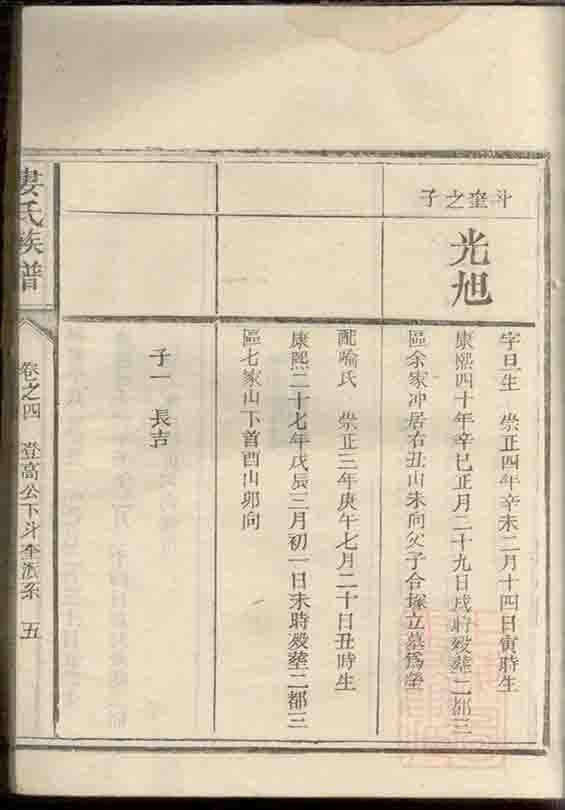 斗奎之子
光旭
字旦生　崇正四年辛未二月十四日寅時生
康熙四十年辛巳正月二十九日戌時殁塟二都三
區余家冲居右丑山未向父子合塚立墓爲塋
配喻氏　崇正三年庚午七月二十日丑時生
康熙二十七年戊辰三月初一日未時殁塟二都三
區七家山下首酉山卯向
子一　長吉
婁氏族譜
卷之四　登高公下斗奎派系　五